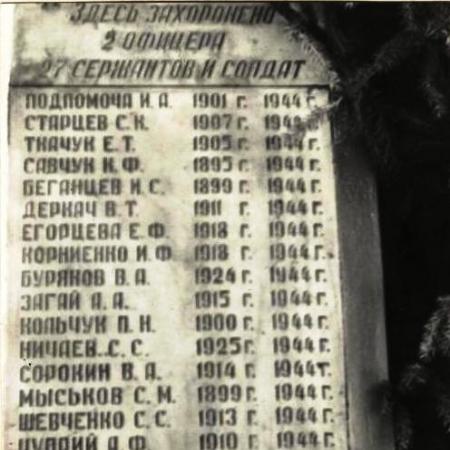 ЗДЕСЬ ЗАХОРОНЕНО
2 ОФИЦЕРА
27 СЕРЖАНТОВ И СОЛДАТ
ПОДПОМОЧА И. А. 1901 г. 1944 г.
СТАРЦЕВ С. К. 1907 г. 1944 г.
ТКАЧУК Е. Т. 1905 г. 1944 г.
САВЧУК К. Ф. 1895 г. 1944 г.
БЕГАНЦЕВ И. С. 1899 г. 1944 г.
ДЕРКАЧ В. Т. 1911 г. 1944 г.
ЕГОРЦЕВА Е. Ф. 1918 г. 1944 г.
КОРНИЕНКО И. Ф. 1918 г. 1944 г.
БУРЯКОВ В. А. 1924 г. 1944 г.
ЗАГАЙ А. А. 1915 г. 1944 г.
КОЛЬЧУК П. Н. 1900 г. 1944 г.
НИЧАЕВ С. С. 1925 г. 1944 г.
СОРОКИН В. А. 1914 г. 1944 г.
МЫСЬКОВ С. М. 1899 г. 1944 г.
ШЕВЧЕНКО С. С. 1913 г. 1944 г.
А. Ф. 1910 г. 1944 г.